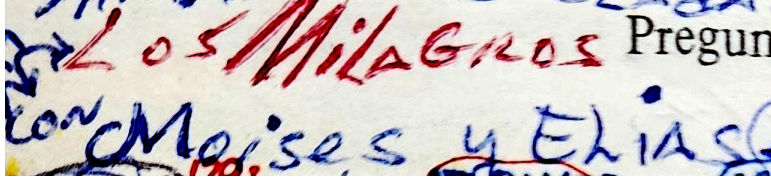 Los MiLAGROS Pregun
CON Moises y ELiAS